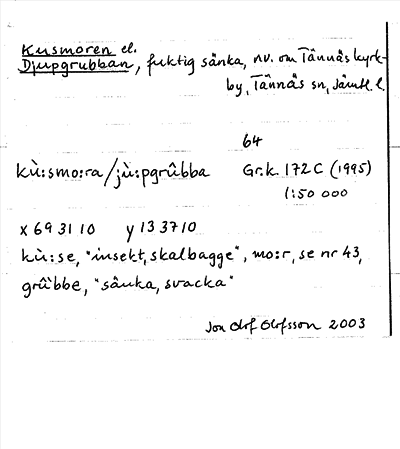 Kusmoren el.
Djupgrubban, fuktig sänka, nv. om Tännäs kyrk-
by, Tännäs sn, Jämtl. l.
64
kù:smo:ra/jù:pgrûbba Gr.k. 172 C (1995)
1:50 000
x 69 31 10 y 13 37 10
kù:se, "insekt, skalbagge", mo:r, se nr 43,
grûbbe, "sänka, svacka"
Jon Olof Olofsson 2003